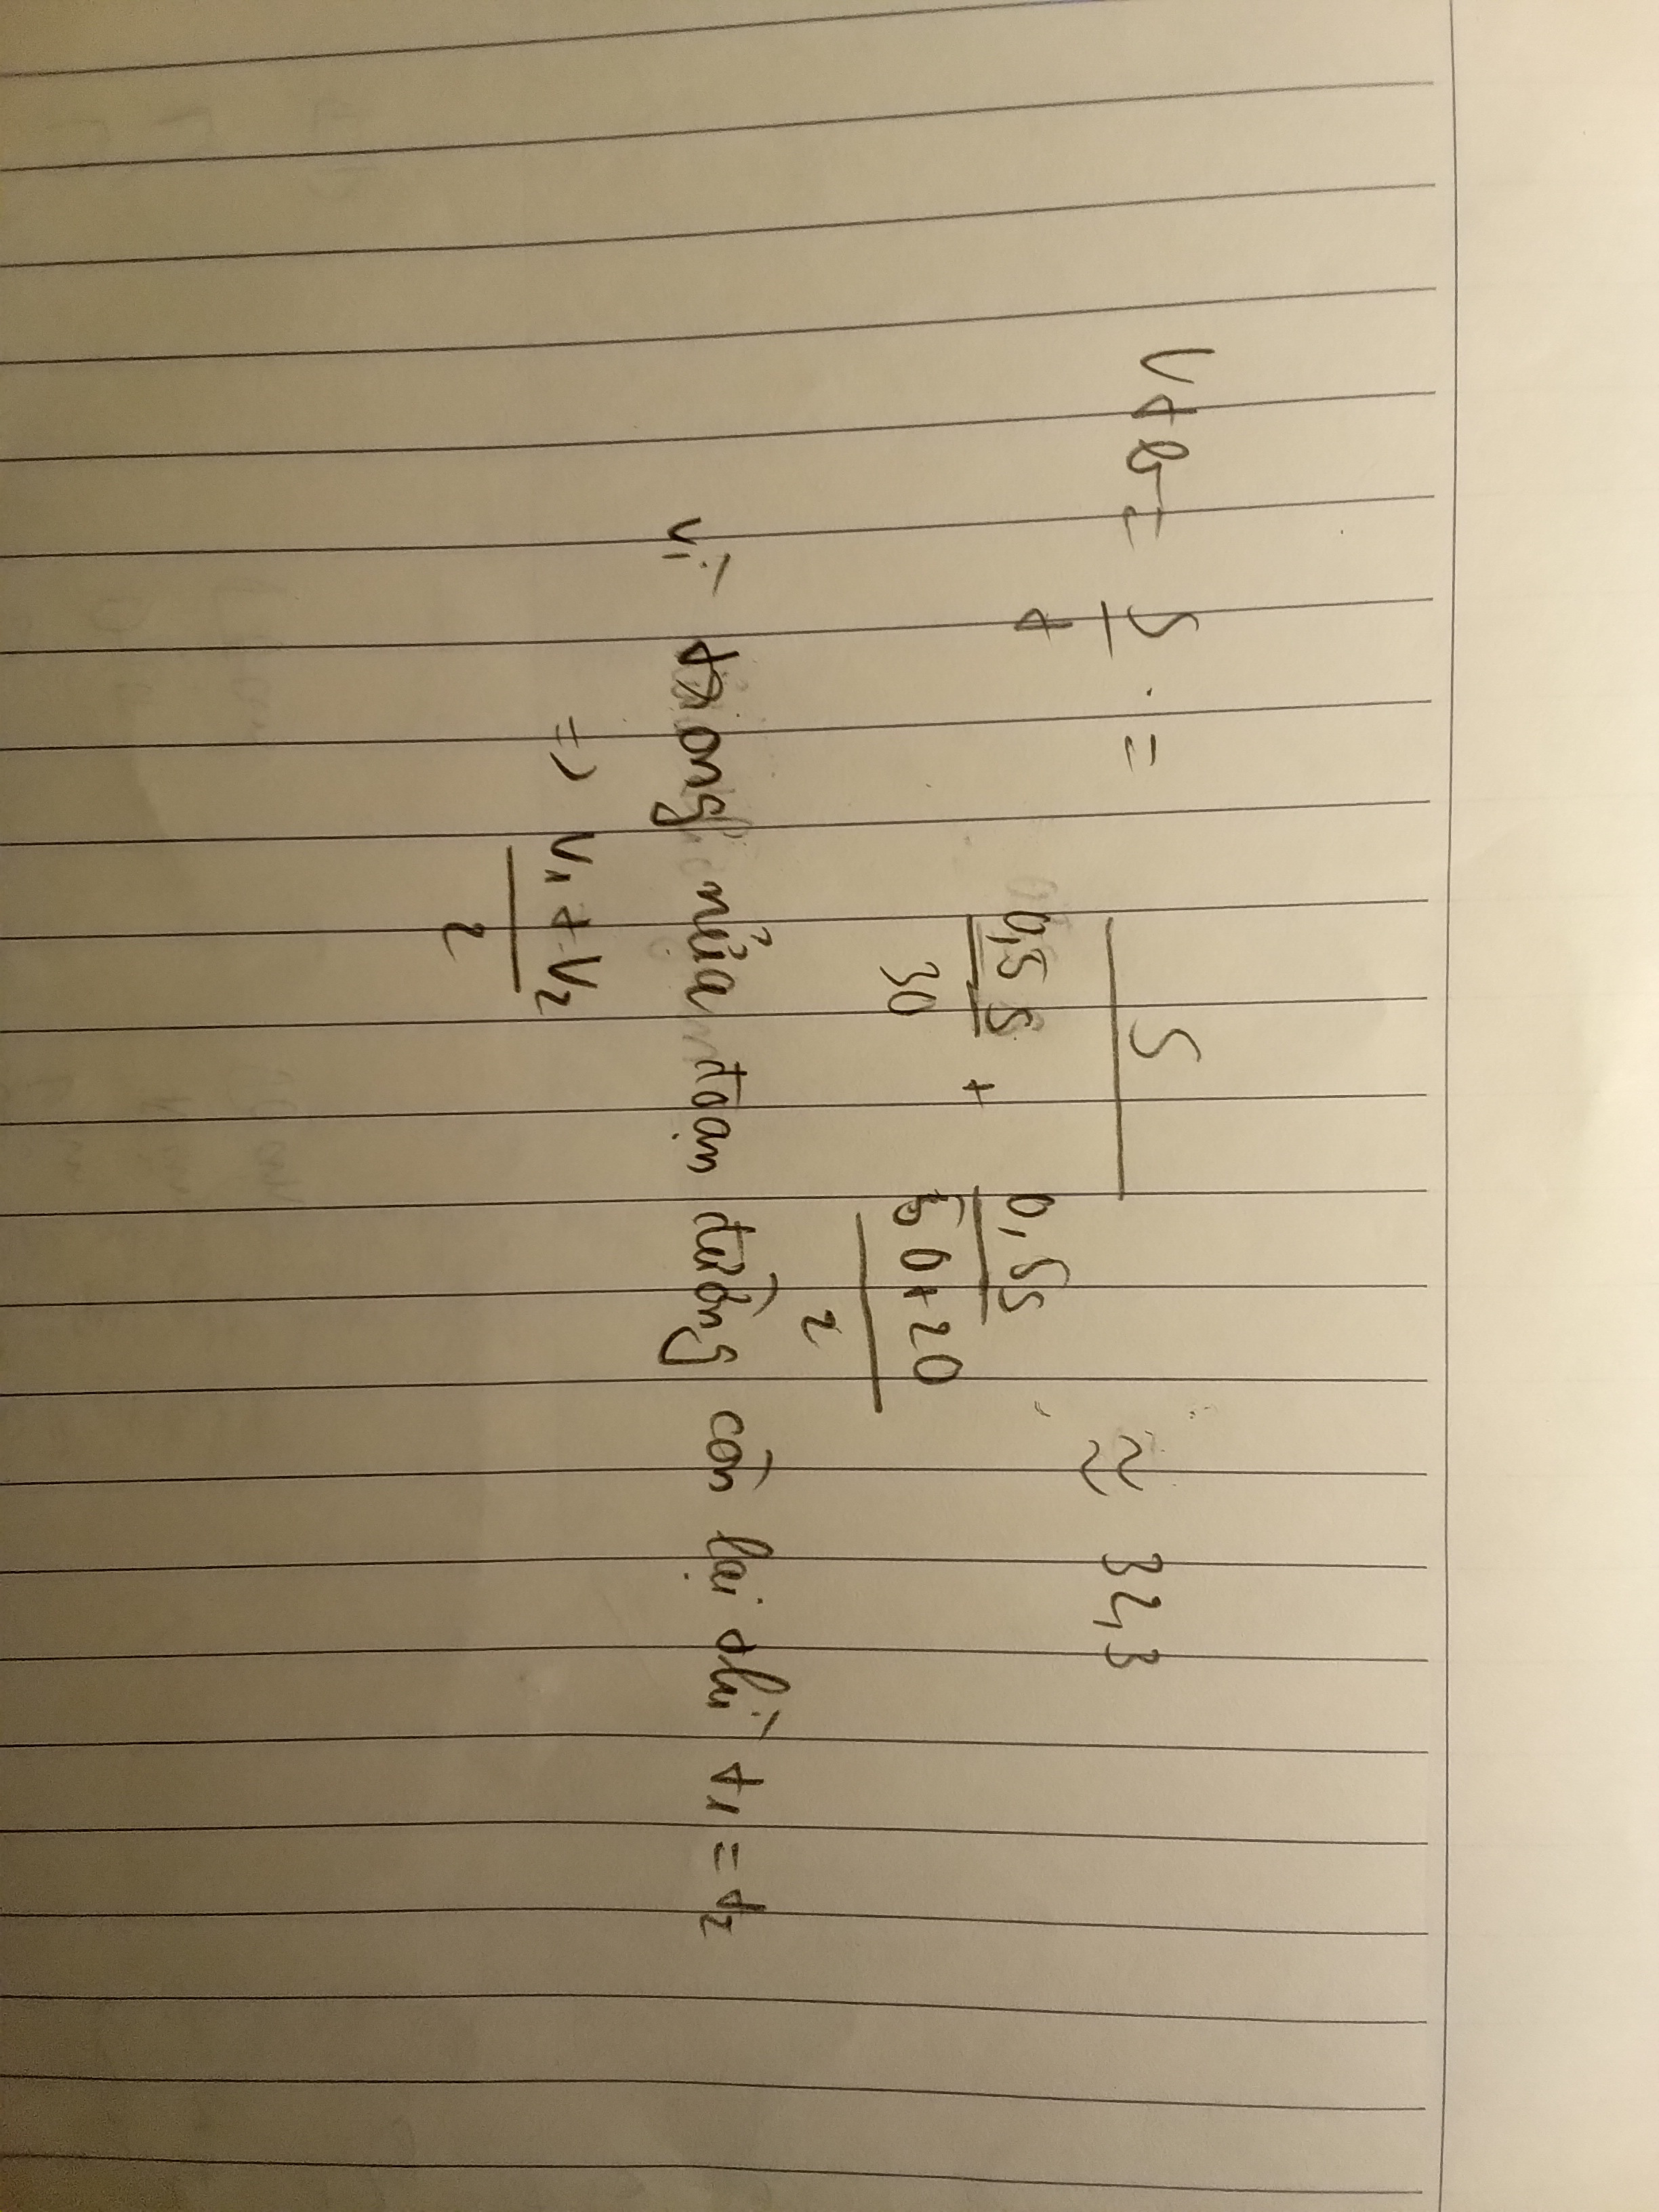 Vtb = S/t = S / (0,5S/30 + 0,5S/((50+20)/2)) ≈ 32,3
vì trong nửa đoạn đường còn lại thì t1 = t2
=> (V1 + V2)/2